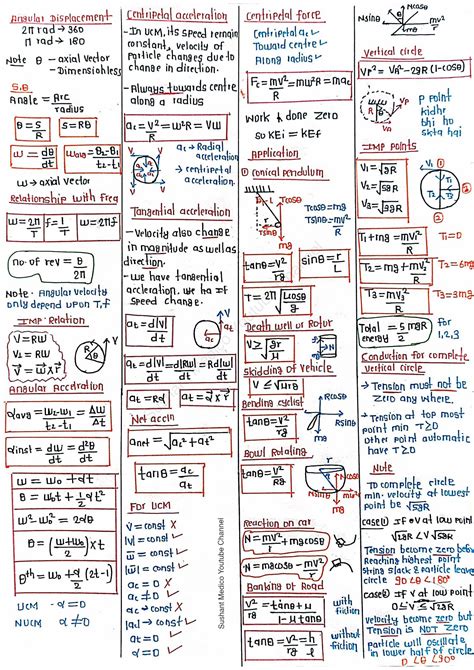 Angular Displacement
2π rad → 360
π rad → 180
Note θ - axial vector
- Dimensionless
S.B
Angle = Arc / radius
θ = S/R
S = Rθ
ω = dθ/dt
ωavg = θ2-θ1 / t2-t1
ω → axial vector
Relationship with freq
ω = 2π/T
f = 1/T
ω = 2πf
no. of rev = θ/2π
Note - Angular velocity
only depend upon T, f
IMP Relation
V = RW
V2 = RW
V = ω x r
Angular Acceleration
αavg = ω2-ω1 / t2-t1 = Δω/Δt
αinst = dω/dt = d²θ/dt
ω = ω0 + αt
θ = ω0t + 1/2 αt²
ω² - ω0² = 2αθ
θ = (ω+ω0 / 2) x t
θth = ω0 + α/2 (2t-1)
UCM - α = 0
NUCM α ≠ 0
Centripetal acceleration
- In UCM, its speed remain
constant, velocity of
particle changes due to
change in direction.
- Always towards centre
along a radius
ac = V²/R = ω²R = Vω
ac → Radial
acceleration
→ centripetal
acceleration
Tangential acceleration
- Velocity also change
in magnitude as well as
direction.
- we have tangential
acceleration. we ha if
speed change.
at = d|V|/dt
at
V
at = d|V|/dt = d|Rω|/dt = Rd|ω|/dt
at = Rα
at = α x r
Net accln
anet = √ac² + at²
tanθ = ac/at
For UCM
V = const ✗
|V| = const ✓
ω = const ✓
|ω| = const ✓
ac = 0 ✗
ac ≠ 0 ✓
ac = const ✗
|ac| → const ✓
at = 0 ✓
α = 0 ✓
Sushant Medico Youtube Channel
Centripetal force
Centripetal ac
Toward centre
Along radius
Fc = mv²/R = mω²R = mac
Work done zero
so KEi = KEf
Application
① conical pendulum
Tcosθ = mg
Tsinθ = mv²/r
Tsinθ
mg
tanθ = V²/rg
sinθ = r/L
T = 2π √Lcosθ/g
Death well or Rotor
V ≥ √gr/μ
Skidding of vehicle
V ≤ √μrg
Bending cyclist
tanθ = V²/rg
Rcosθ
mg
Bowl Rotating
tanθ = V²/rg
r
Ncosθ
Nsinθ
mg
Reaction on car
N = mv²/r + mgcosθ
N = mgcosθ - mv²/r
Banking of Road
V²/rg = tanθ+μ / 1-μtanθ
with
friction
tanθ = V²/rg = h/l
without
friction
Ncosθ
Nsinθ
mv²/r
mg
Vertical circle
VP² = VA² - 2gR (1-cosθ)
VP
VA
P point
kidhr
bhi ho
skta hai
IMP points
V1 = √gR
V2 = √3gR
V3 = √5gR
V1
T1
T2
T3
T1 + mg = mV1²/R
T1 = 0
T2 = mV2²/R
T2 = 3mg
T3 - mg = mV3²/R
T3 = 6mg
Total energy = 5/2 mgR
for
1,2,3
Conduction for complete
vertical circle
→ Tension must not be
zero any where.
→ Tension at top most
point min T≥0
other point automatic
have T≥0
Note
To complete circle
min. velocity at lowest
point be √5gR
case① If ⊖V at low point
√2RG < V < √5gR
Tension become zero before
reaching highest point
string slack & particle leave
circle 90 <θ <180°
case② If V at low point
0 ≤ V ≤ √2gR
velocity become zero but
Tension is NOT zero
Particle will oscillate
in lower half of circle
0 <θ ≤90°